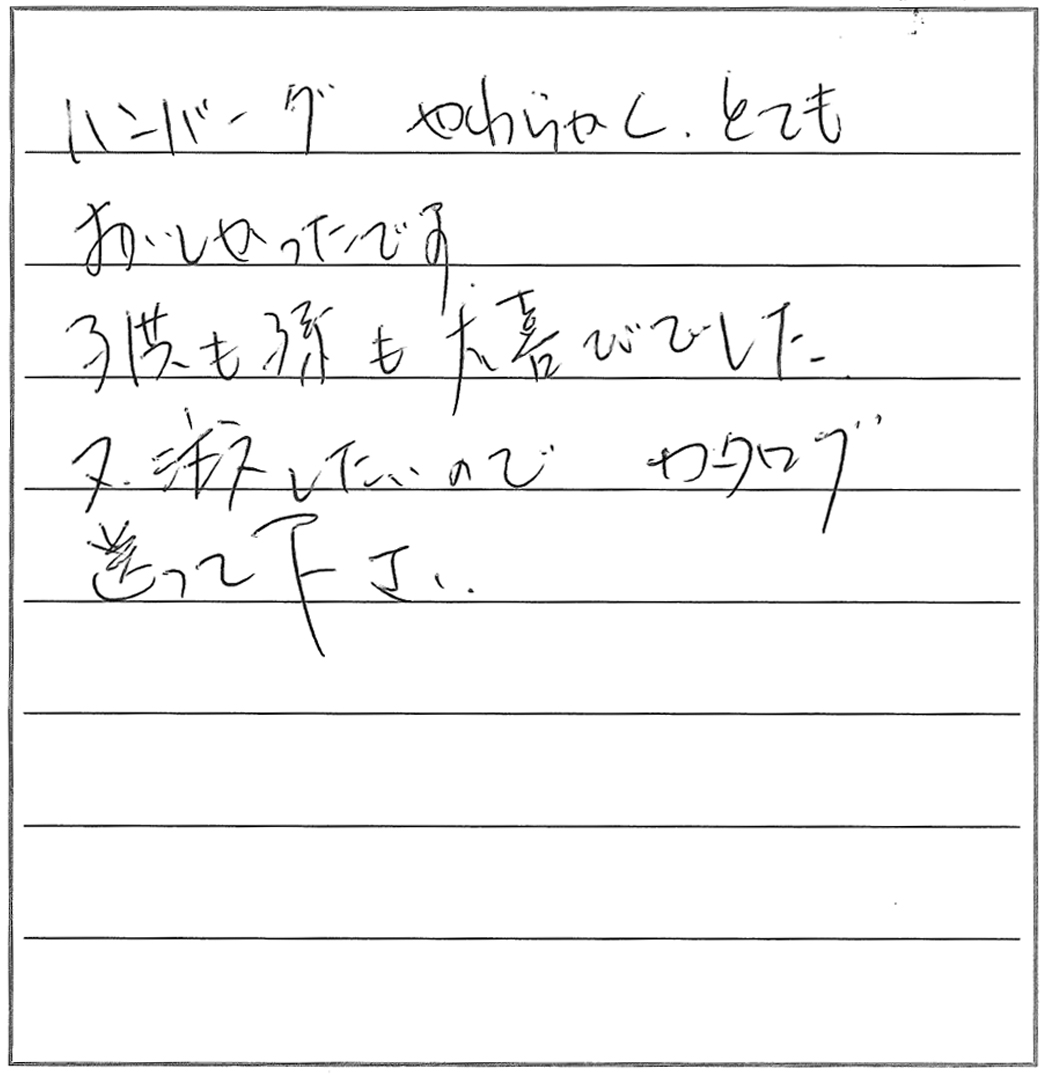 ハンバーグ やわらかく、とても
おいしかったです
子供も孫も大喜びでした。
又、注文したいので カタログ
送って下さい。